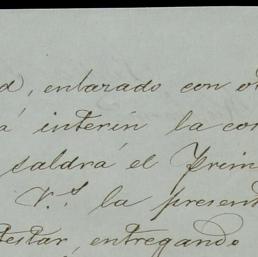 d, enlazado con ot
a interin la con
saldrá el Prim
V.s la present
testar, entregando